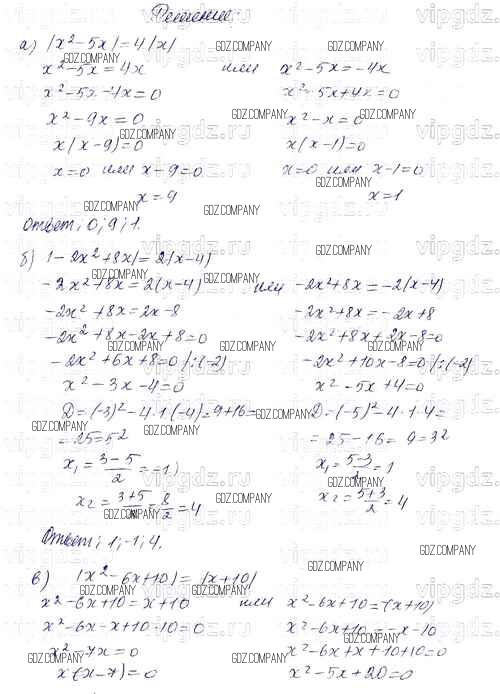 Решение.
а) |x²-5x|=4|x|
x²-5x=4x или x²-5x=-4x
x²-5x-4x=0 x²-5x+4x=0
x²-9x=0 x²-x=0
x(x-9)=0 x(x-1)=0
x=0 или x-9=0 x=0 или x-1=0
x=9 x=1
Ответ: 0; 9; 1.
б) |-2x²+8x|=2|x-4|
-2x²+8x=2(x-4) или -2x²+8x=-2(x-4)
-2x²+8x=2x-8 -2x²+8x=-2x+8
-2x²+8x-2x+8=0 -2x²+8x+2x-8=0
-2x²+6x+8=0 |:(-2) -2x²+10x-8=0 |:(-2)
x²-3x-4=0 x²-5x+4=0
D=(-3)²-4·1·(-4)=9+16= D=(-5)²-4·1·4=
=25=5² =25-16=9=3²
x₁=(3-5)/2=-1; x₁=(5-3)/2=1
x₂=(3+5)/2=8/2=4 x₂=(5+3)/2=4
Ответ: 1; -1; 4.
в) |x²-6x+10|=|x+10|
x²-6x+10=x+10 или x²-6x+10=-(x+10)
x²-6x-x+10-10=0 x²-6x+10=-x-10
x²-7x=0 x²-6x+x+10+10=0
x(x-7)=0 x²-5x+20=0
GDZ.COMPANY
vipgdz.ru